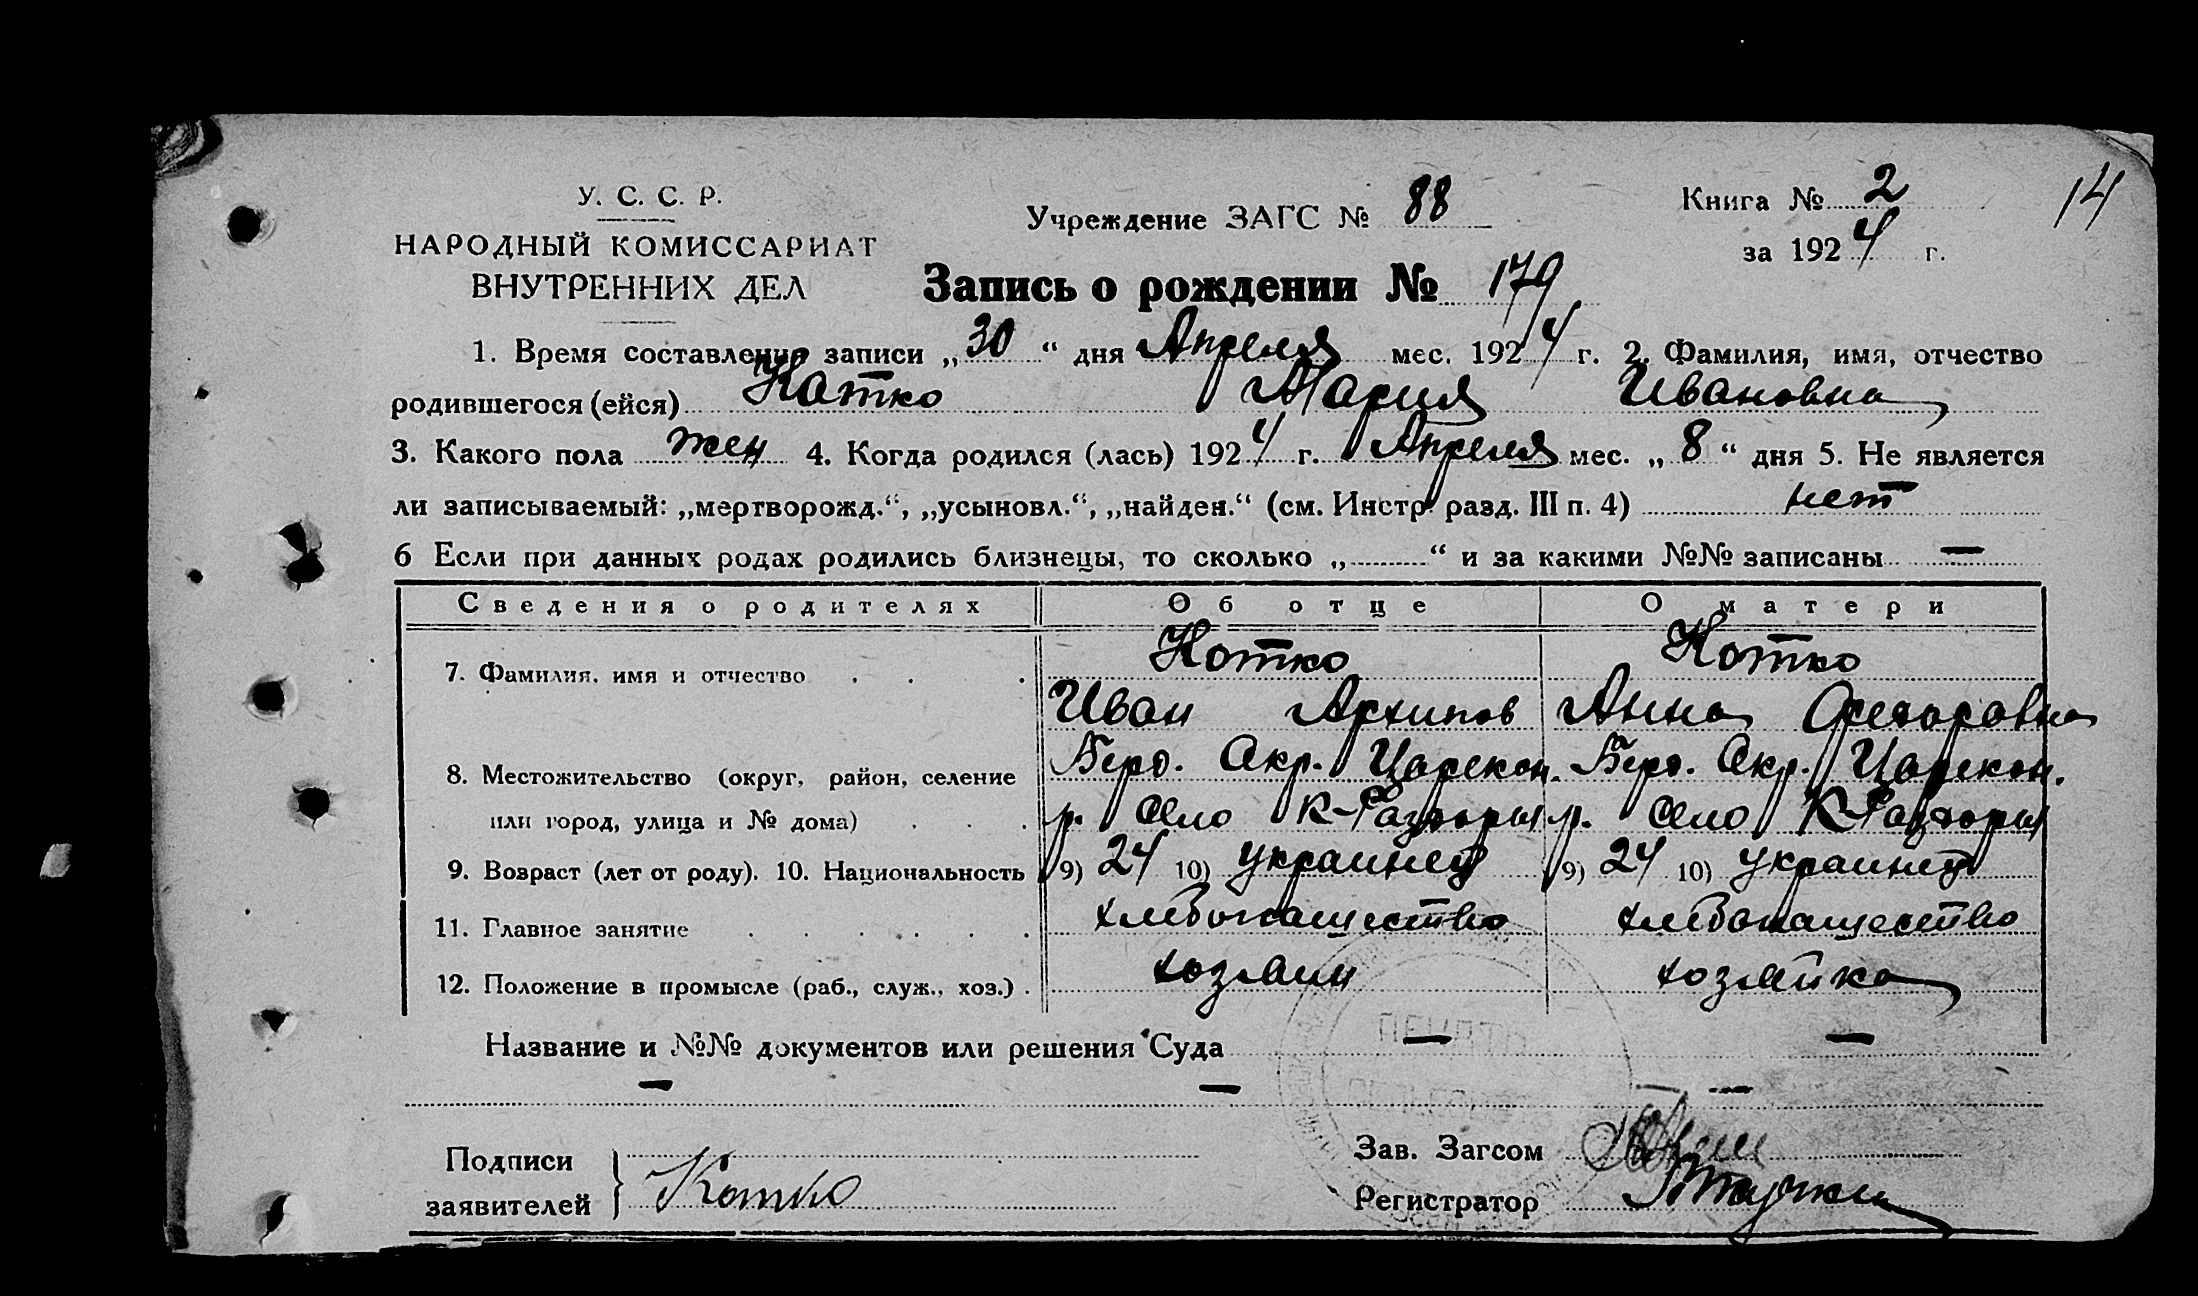 У. С. С. Р.
НАРОДНЫЙ КОМИССАРИАТ
ВНУТРЕННИХ ДЕЛ
Учреждение ЗАГС № 88
Книга № 2
14
за 1924 г.
Запись о рождении № 179
1. Время составления записи „30“ дня Апреля мес. 1924 г. 2. Фамилия, имя, отчество
родившегося (ейся) Котко Мария Ивановна
3. Какого пола жен 4. Когда родился (лась) 1924 г. Апреля мес. „8“ дня 5. Не является
ли записываемый: „мертворожд.“, „усыновл.“, „найден.“ (см. Инстр. разд. III п. 4) нет
6 Если при данных родах родились близнецы, то сколько „ “ и за какими №№ записаны —
Сведения о родителях Об отце О матери
7. Фамилия, имя и отчество Котко Котко
Иван Архипов Анна
8. Местожительство (округ, район, селение Берд. Окр. Царекон. Берд. Окр. Царекон.
или город, улица и № дома) р. село К-Разгоры р. село К-Разгоры
9. Возраст (лет от роду). 10. Национальность 9) 24 10) украинец 9) 24 10) украинец
11. Главное занятие хлебопашество хлебопашество
12. Положение в промысле (раб., служ., хоз.) хозяин хозяйка
Название и №№ документов или решения Суда — —
— — —
Подписи
заявителей Котко
Зав. Загсом
Регистратор